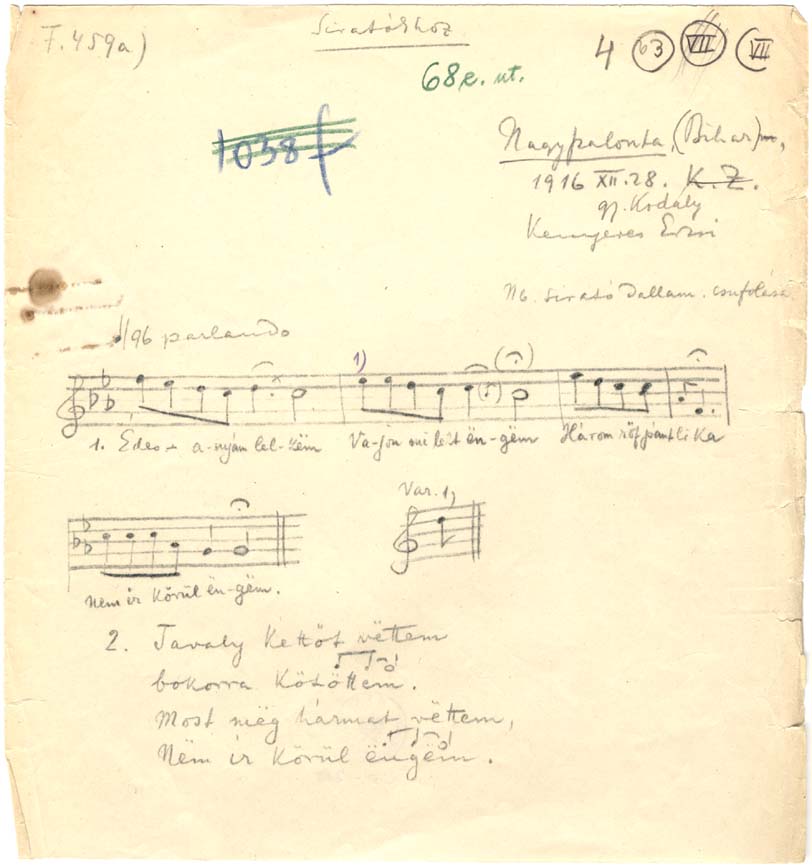 F. 459a)
Siratókhoz
4 63 VII VII
68e. ut.
1038 f
Nagyszalonta, (Bihar)m,
1916 XII. 28. K. Z.
gy. Kodály
Kenyeres Erzsi
NB. Sirató dallam. csufolása
/96 parlando
1)
1. Édes a-nyám lel-këm Va-jon mi lelt ën-gëm Három rőf pántlika
Nem ír körül ën-gëm.
Var. 1)
2. Tavaly kettőt vëttem
bokorra kötöttem.
Most mëg hármat vëttem,
Nëm ír körül ëngëm.